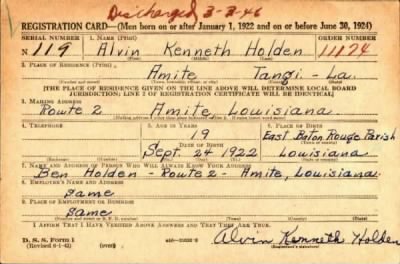 Discharged 3-3-46
REGISTRATION CARD—(Men born on or after January 1, 1922 and on or before June 30, 1924)
SERIAL NUMBER 1. NAME (Print) ORDER NUMBER
N 119 Alvin Kenneth Holden 11124
(First) (Middle) (Last)
2. PLACE OF RESIDENCE (Print)
Amite Tangi - La.
(State)
[THE PLACE OF RESIDENCE GIVEN ON THE LINE ABOVE WILL DETERMINE LOCAL BOARD
JURISDICTION; LINE 2 OF REGISTRATION CERTIFICATE WILL BE IDENTICAL]
3. MAILING ADDRESS
Route 2 Amite, Louisiana
4. TELEPHONE 5. AGE IN YEARS 6. PLACE OF BIRTH
19 East Baton Rouge Parish
DATE OF BIRTH
Sept. 24 1922 Louisiana
(Exchange) (Number) (Mo.) (Day) (Yr.) (State or country)
7. NAME AND ADDRESS OF PERSON WHO WILL ALWAYS KNOW YOUR ADDRESS
Ben Holden - Route 2 - Amite, Louisiana
8. EMPLOYER'S NAME AND ADDRESS
Same
9. PLACE OF EMPLOYMENT OR BUSINESS
Same
I AFFIRM THAT I HAVE VERIFIED ABOVE ANSWERS AND THAT THEY ARE TRUE.
D. S. S. Form 1
(Revised 6-1-42) (over)
Alvin Kenneth Holden
(Registrant's signature)